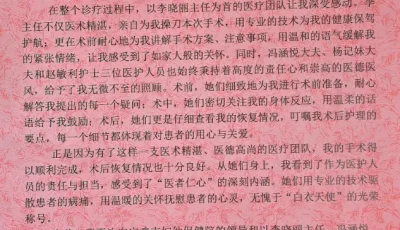 在整个诊疗过程中，以李晓丽主任为首的医疗团队让我深受感动，李
主任不仅医术精湛，亲自为我操刀本次手术，用专业的技术为我的健康保驾
护航；更在术前耐心地为我讲解手术方案、注意事项，用温和的语气缓解我
的紧张情绪，让我感受到了如家人般的关怀。同时，冯涵悦大夫、杨记妹大
夫和赵敏利护士三位医护人员也始终秉持着高度的责任心和崇高的医德医
风，给予了我无微不至的照顾。术前，她们细致地为我进行术前准备，耐心
解答我提出的每一个疑问；术中，她们密切关注我的身体反应，用温柔的话
语给予我鼓励；术后，她们更是仔细查看我的恢复情况，叮嘱我术后护理的
要点，每一个细节都体现着对患者的用心与关爱。
正是因为有了这样一支医术精湛、医德高尚的医疗团队，我的手术得
以顺利完成，术后恢复情况也十分良好。从她们身上，我看到了作为医护人
员的责任与担当，感受到了“医者仁心”的深刻内涵。她们用专业的技术驱
散患者的病痛，用温暖的关怀抚慰患者的心灵，无愧于“白衣天使”的光荣
称号。